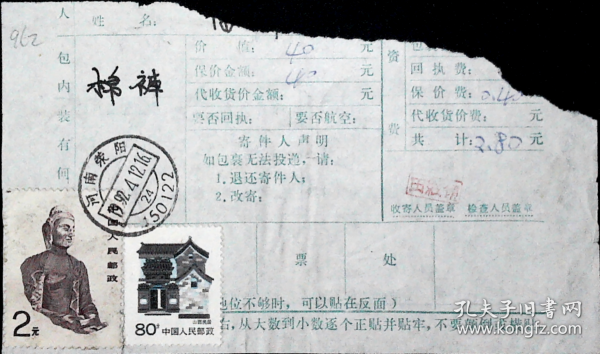 人 姓 名:
962
包内装有
棉裤
价 值: 40 元
保价金额: 40 元
代收货价金额: 元
要否回执: 要否航空:
寄件人声明
如包裹无法投递,请:
1.退还寄件人;
2.改寄:
资费
回执费: 元
保价费: 0.40 元
代收货价费: 元
共 计: 2.80 元
收寄人员盖章 检查人员盖章
河南荥阳
1992.4.12.16
24
450122
中国人民邮政
2元
山西民居
80分 中国人民邮政
票 处
地位不够时,可以贴在反面)
右,从大数到小数逐个正贴并贴牢,不要
孔夫子旧书网
www.kongfz.com